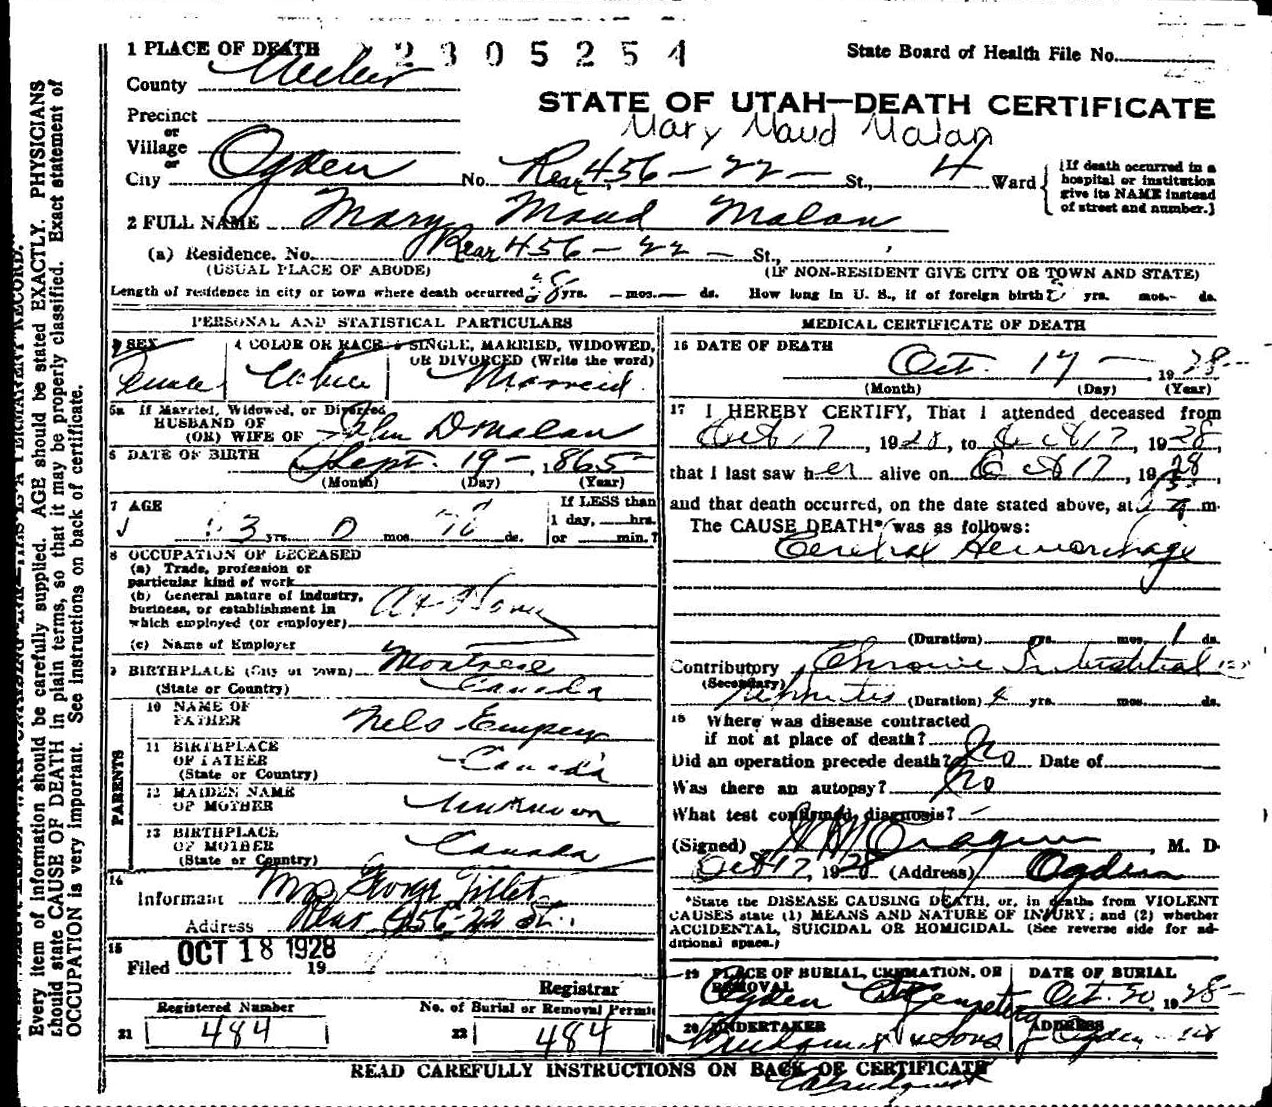 1 PLACE OF DEATH 2305254 State Board of Health File No.
County Weber
STATE OF UTAH—DEATH CERTIFICATE
Precinct
Mary Maud Malan
or
Village
or
City Ogden No. Rear 456 - 22 - St., 4 Ward
(If death occurred in a hospital or institution give its NAME instead of street and number.)
2 FULL NAME Mary Maud Malan
(a) Residence. No. Rear 456 - 22 - St.,
(USUAL PLACE OF ABODE) (IF NON-RESIDENT GIVE CITY OR TOWN AND STATE)
Length of residence in city or town where death occurred yrs. mos. ds. How long in U. S., if of foreign birth? yrs. mos. ds.
PERSONAL AND STATISTICAL PARTICULARS
3 SEX 4 COLOR OR RACE 5 SINGLE, MARRIED, WIDOWED, OR DIVORCED (Write the word)
Female White Married
5a If Married, Widowed, or Divorced
HUSBAND OF
(OR) WIFE OF John D Malan
6 DATE OF BIRTH Sept. 19 - , 1865
(Month) (Day) (Year)
7 AGE If LESS than
1 day, hrs.
yrs. 0 mos. ds. or min.?
8 OCCUPATION OF DECEASED
(a) Trade, profession or
particular kind of work
(b) General nature of industry,
business, or establishment in
which employed (or employer) At Home
(c) Name of Employer
9 BIRTHPLACE (City or town)
(State or Country) Canada
PARENTS
10 NAME OF
FATHER Nels
11 BIRTHPLACE
OF FATHER
(State or Country) Canada
12 MAIDEN NAME
OF MOTHER Unknown
13 BIRTHPLACE
OF MOTHER
(State or Country) Canada
14
Informant Mrs George
Address Rear 456-22 St.
15 OCT 18 1928
Filed 19
Registrar
Registered Number No. of Burial or Removal Permit
21 484 22 484
MEDICAL CERTIFICATE OF DEATH
16 DATE OF DEATH
Oct. 17 - 1928
(Month) (Day) (Year)
17 I HEREBY CERTIFY, That I attended deceased from
Oct 17, 1928, to Oct 17, 1928,
that I last saw her alive on Oct 17, 1928,
and that death occurred, on the date stated above, at m.
The CAUSE DEATH* was as follows:
Cerebral Hemorrhage
(Duration) yrs. mos. 1 ds.
Contributory Chronic Interstitial
(Secondary)
Nephritis (Duration) 4 yrs. mos. ds.
18 Where was disease contracted
if not at place of death?
Did an operation precede death? No Date of
Was there an autopsy? No
What test confirmed diagnosis?
(Signed) , M. D.
Oct 17, 1928 (Address) Ogden
*State the DISEASE CAUSING DEATH, or, in deaths from VIOLENT
CAUSES state (1) MEANS AND NATURE OF INJURY; and (2) whether
ACCIDENTAL, SUICIDAL OR HOMICIDAL. (See reverse side for ad-
ditional space.)
19 PLACE OF BURIAL, CREMATION, OR REMOVAL DATE OF BURIAL
Ogden City Cemetery Oct. 20, 1928
20 UNDERTAKER ADDRESS
& Sons Ogden
READ CAREFULLY INSTRUCTIONS ON BACK OF CERTIFICATE
Every item of information should be carefully supplied. AGE should be stated EXACTLY. PHYSICIANS
should state CAUSE OF DEATH in plain terms, so that it may be properly classified. Exact statement of
OCCUPATION is very important. See instructions on back of certificate.